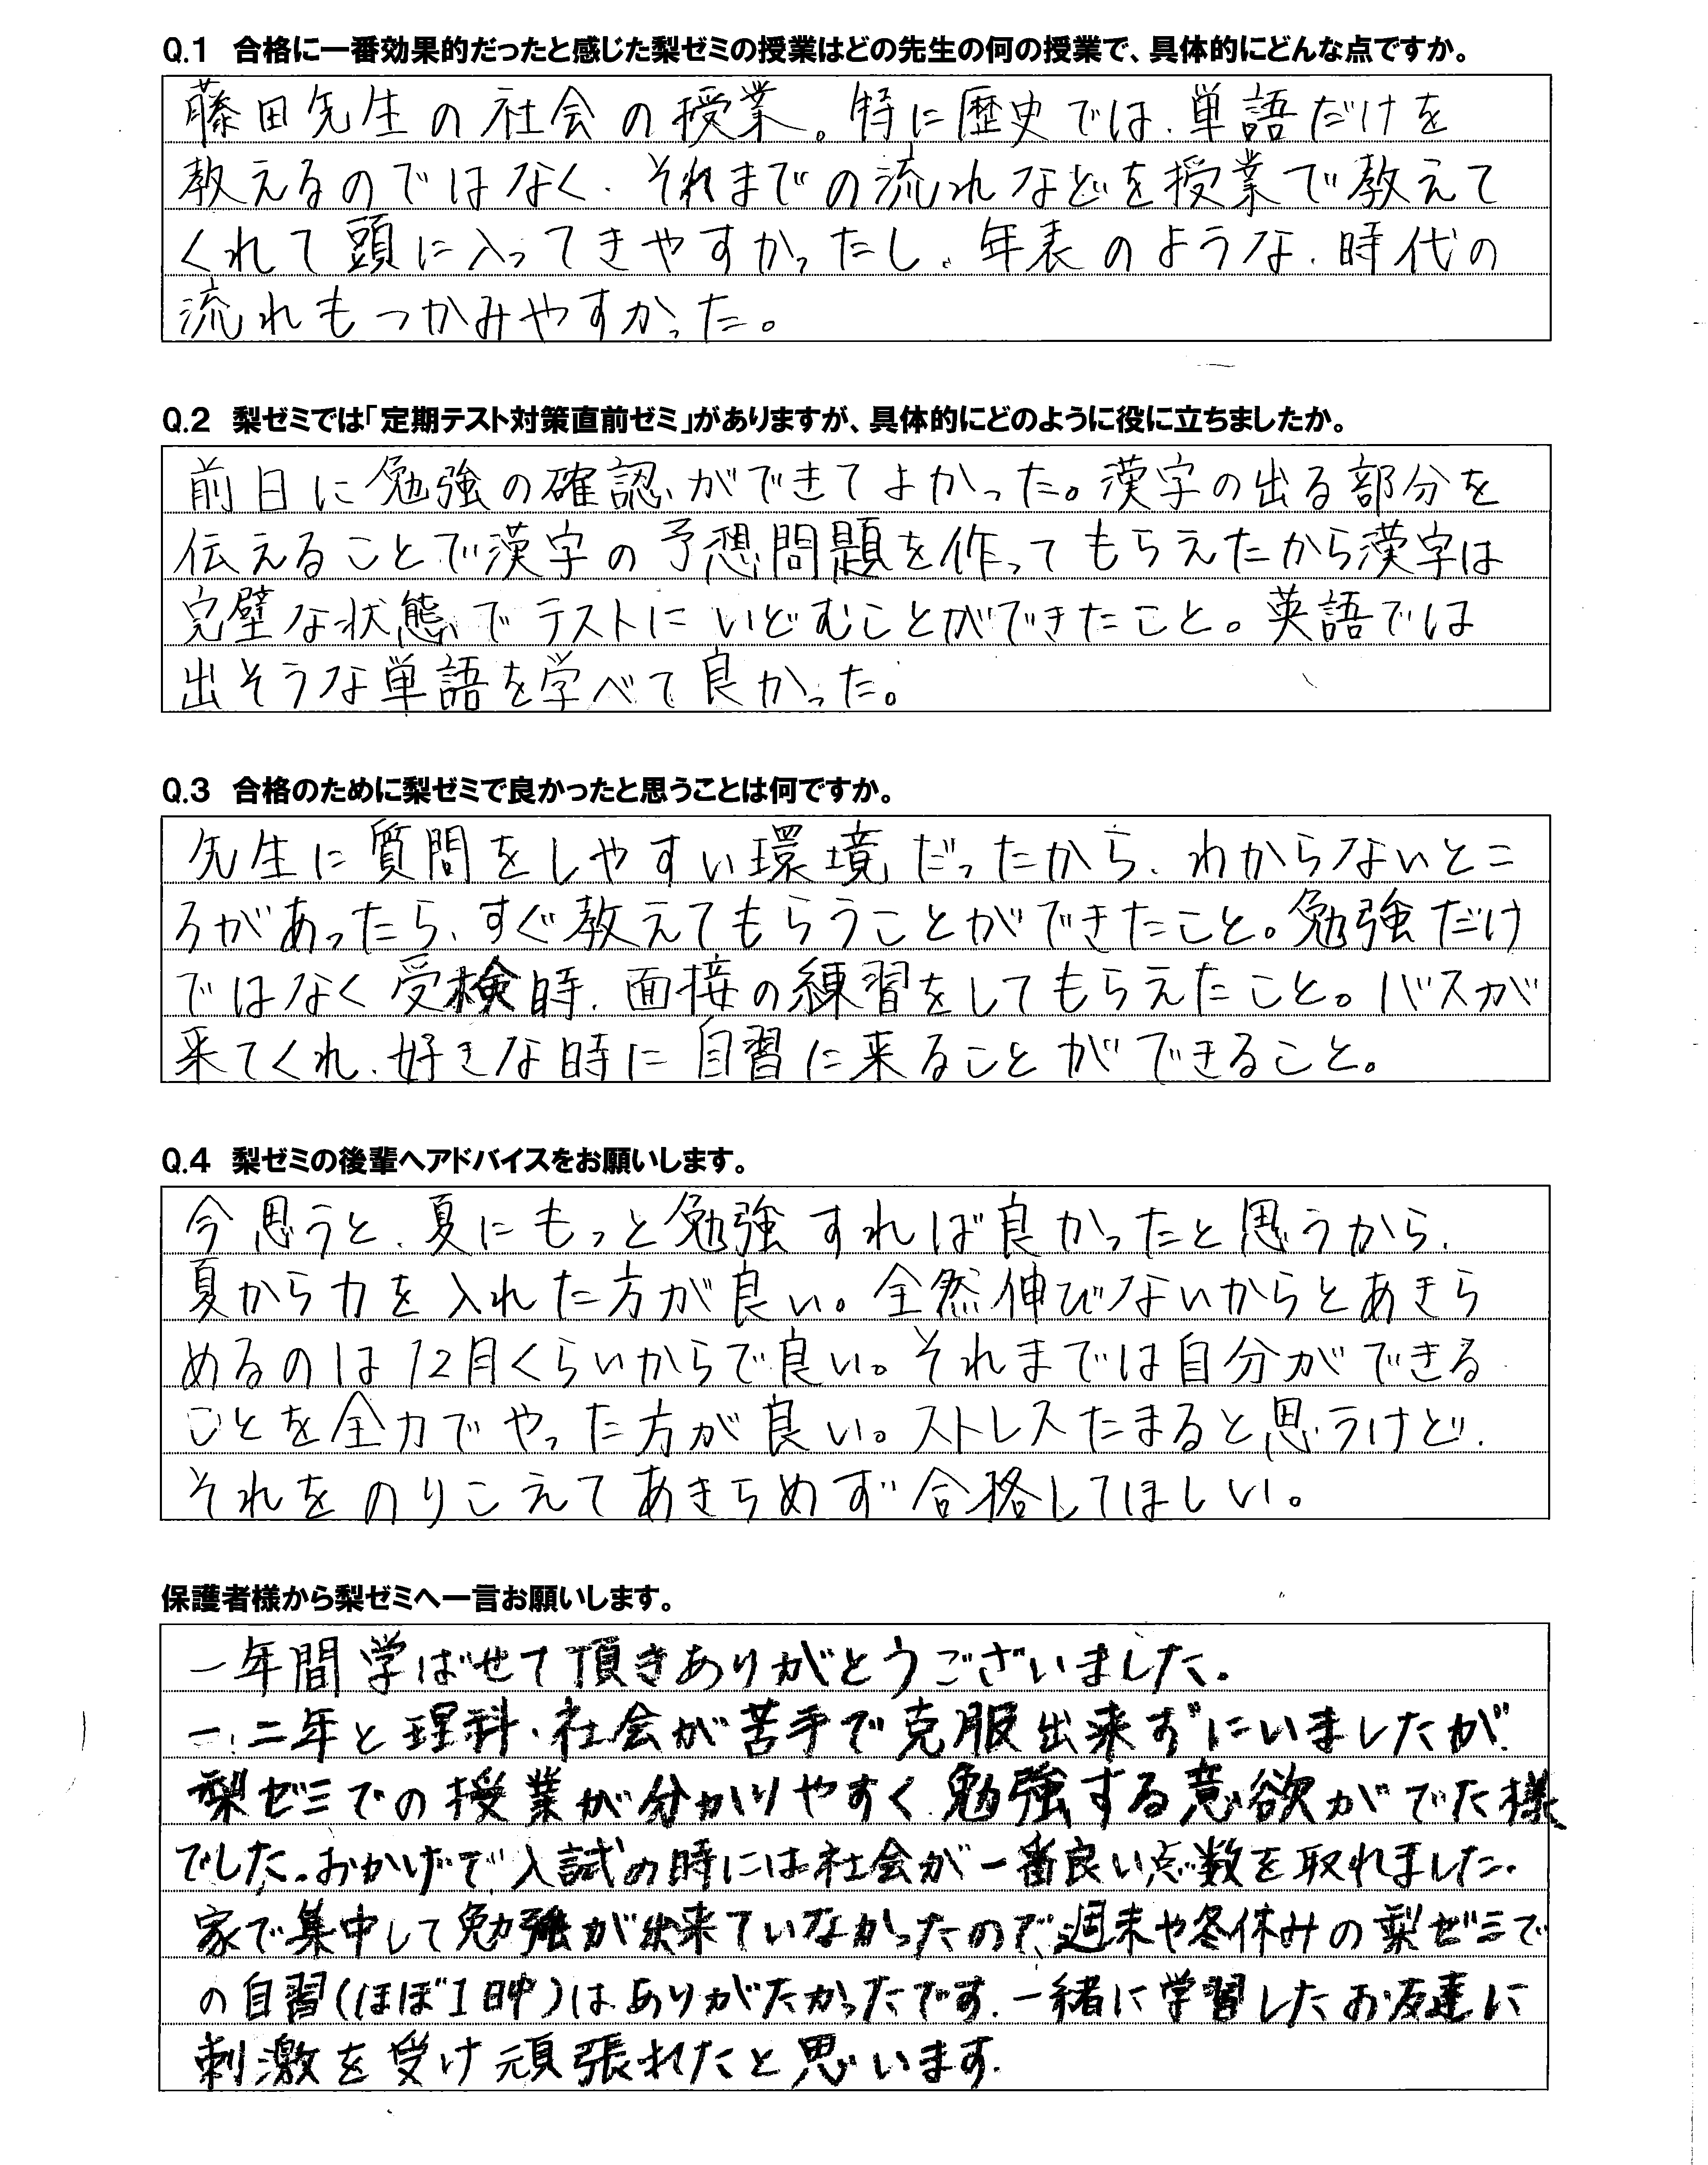 Q.1 合格に一番効果的だったと感じた梨ゼミの授業はどの先生の何の授業で、具体的にどんな点ですか。
藤田先生の社会の授業。特に歴史では、単語だけを
教えるのではなく、それまでの流れなどを授業で教えて
くれて頭に入ってきやすかったし、年表のような、時代の
流れもつかみやすかった。
Q.2 梨ゼミでは「定期テスト対策直前ゼミ」がありますが、具体的にどのように役に立ちましたか。
前日に勉強の確認ができてよかった。漢字の出る部分を
伝えることで漢字の予想問題を作ってもらえたから漢字は
完璧な状態でテストにいどむことができたこと。英語では
出そうな単語を学べて良かった。
Q.3 合格のために梨ゼミで良かったと思うことは何ですか。
先生に質問をしやすい環境だったから、わからないとこ
ろがあったら、すぐ教えてもらうことができたこと。勉強だけ
ではなく受検時、面接の練習をしてもらえたこと。バスが
来てくれ、好きな時に自習に来ることができること。
Q.4 梨ゼミの後輩へアドバイスをお願いします。
今思うと、夏にもっと勉強すれば良かったと思うから、
夏から力を入れた方が良い。全然伸びないからとあきら
めるのは12月くらいからで良い。それまでは自分ができる
ことを全力でやった方が良い。ストレスたまると思うけど、
それをのりこえてあきらめず合格してほしい。
保護者様から梨ゼミへ一言お願いします。
一年間学ばせて頂きありがとうございました。
一、二年と理科・社会が苦手で克服出来ずにいましたが、
梨ゼミでの授業が分かりやすく、勉強する意欲がでた様
でした。おかげで、入試の時には社会が一番良い点数を取れました。
家で集中して勉強が出来ていなかったので、週末や冬休みの梨ゼミで
の自習(ほぼ1日中)は、ありがたかったです。一緒に学習したお友達に
刺激を受け頑張れたと思います。